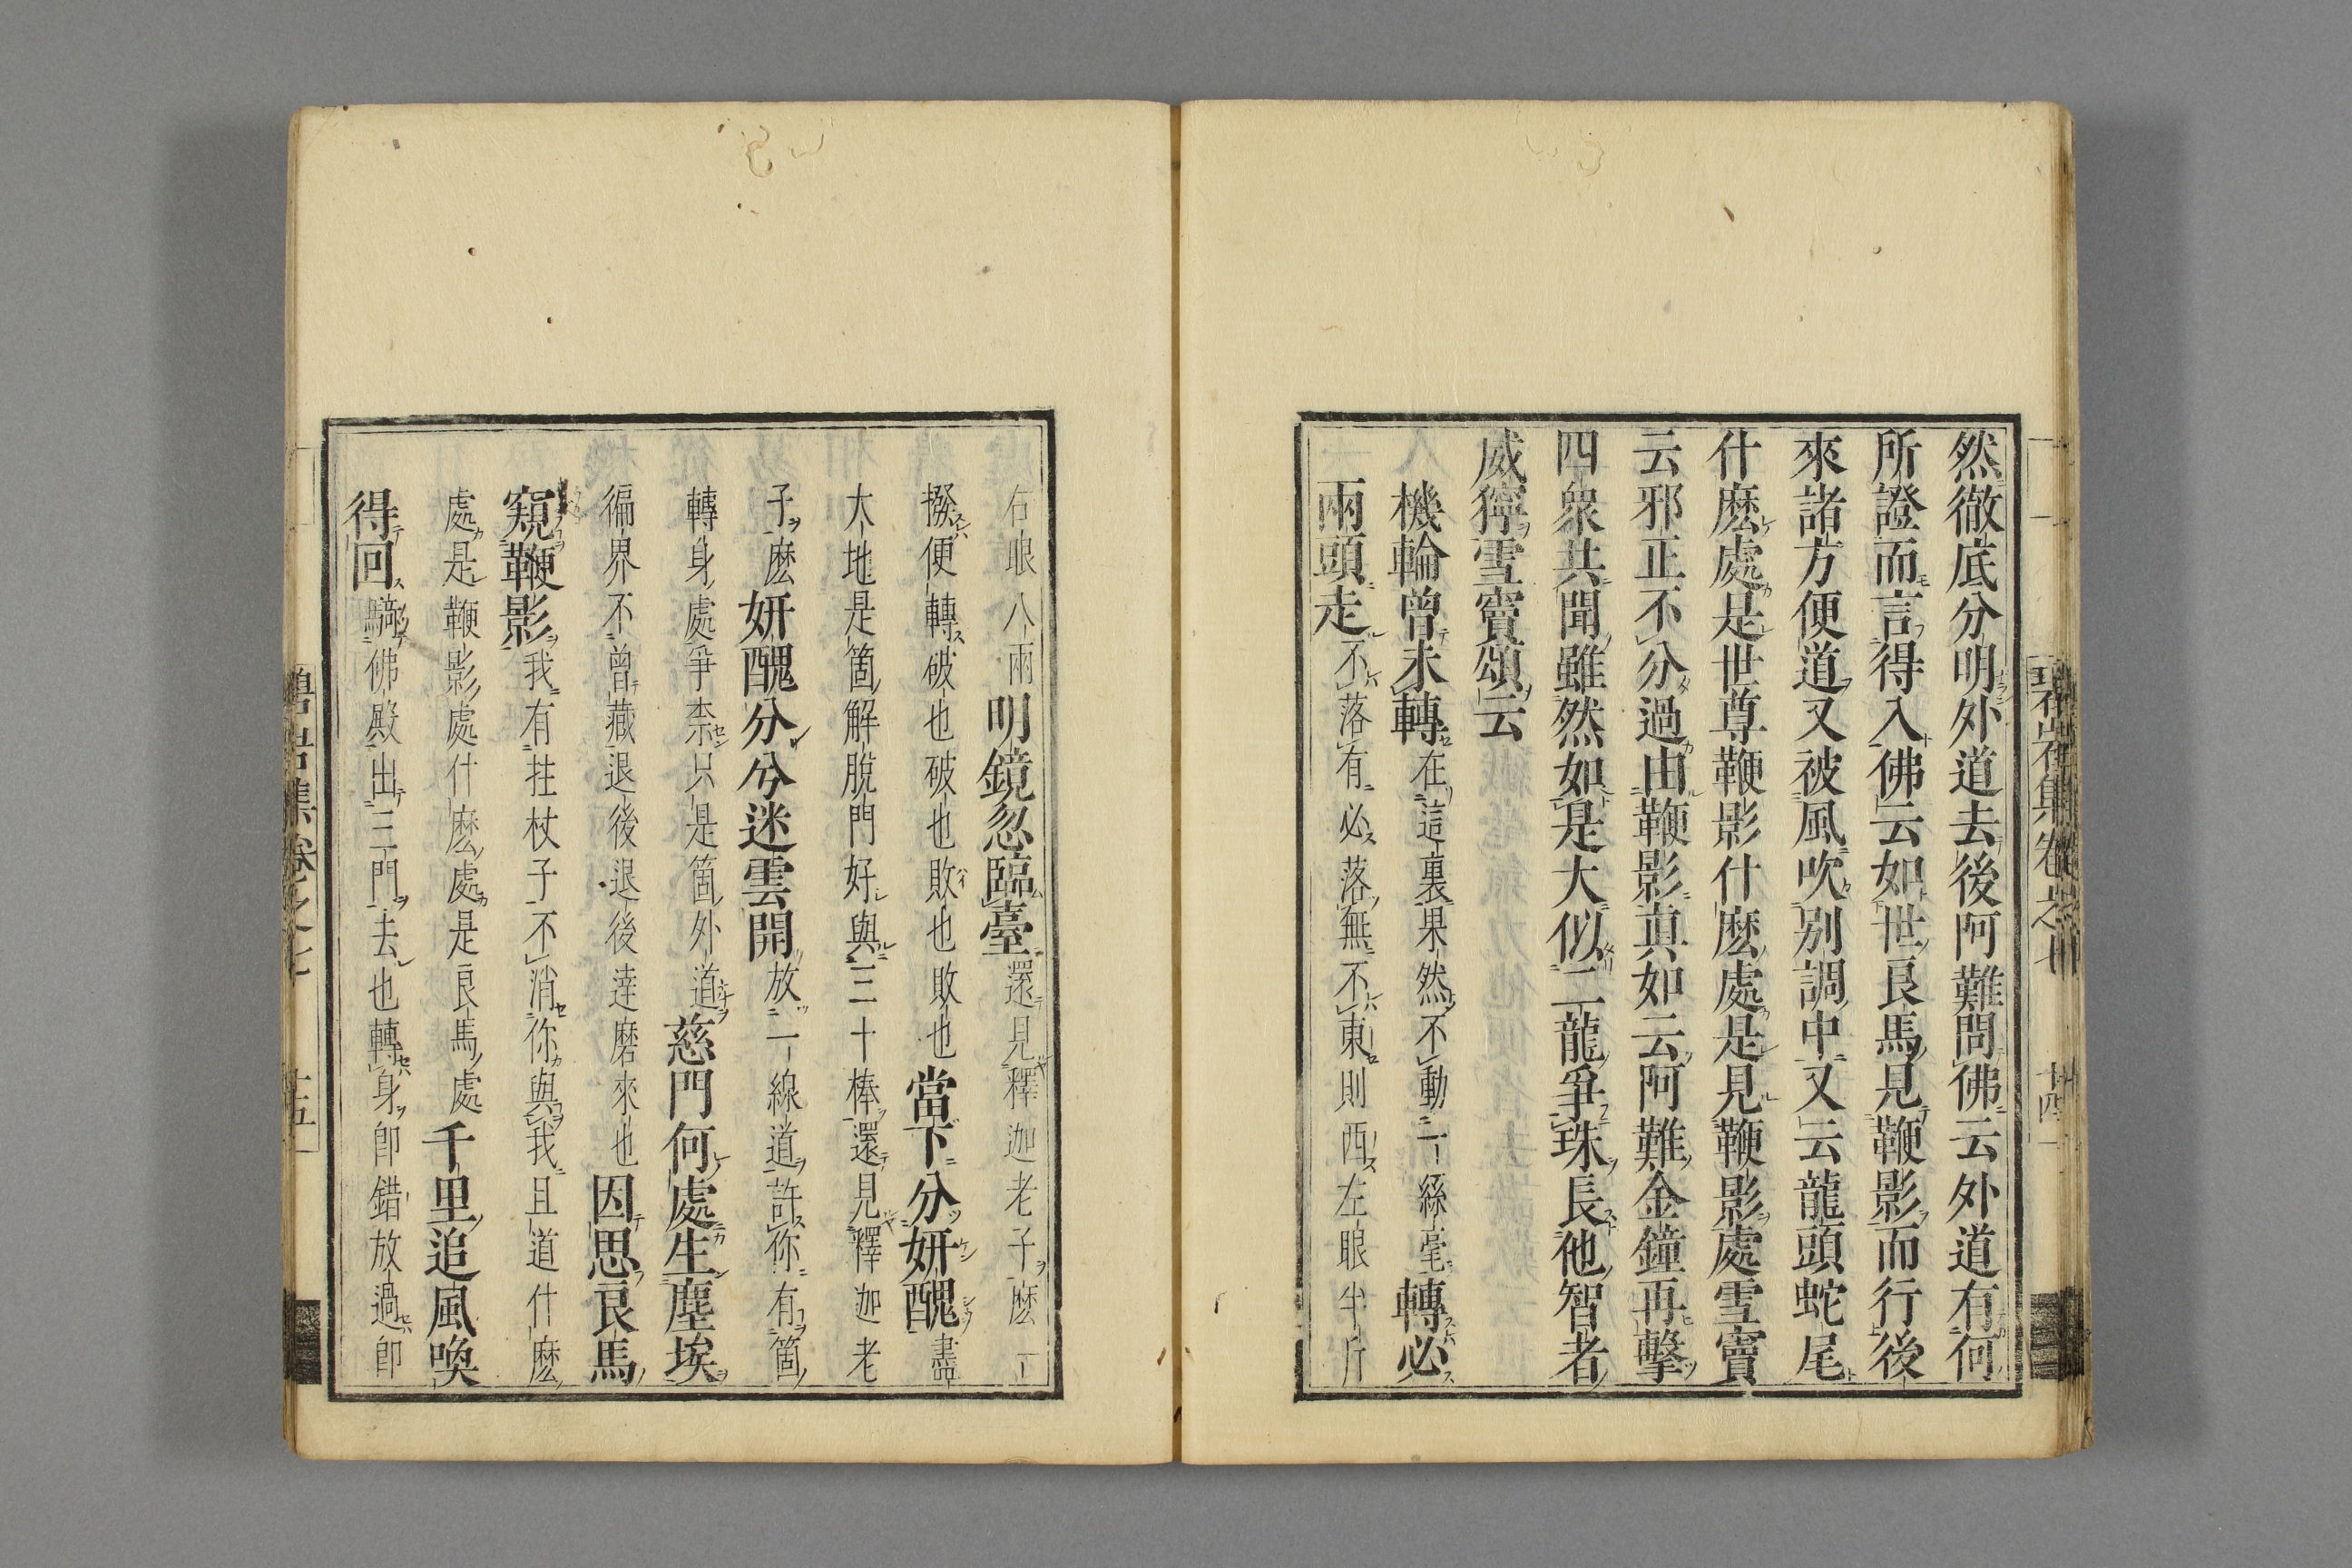 碧岩集卷之七 十四
然徹底分明外道去後阿難問佛云外道有何
所證而言得入佛云如世良馬見鞭影而行後
來諸方便道又被風吹別調中又云龍頭蛇尾
什麼處是世尊鞭影什麼處是見鞭影處雪竇
云邪正不分過由鞭影真如云阿難金鐘再擊
四衆共聞雖然如是大似二龍爭珠長他智者
威獰雪竇頌云
機輪曾未轉在這裏果然不動一絲毫轉必
兩頭走不落有必落無不東則西左眼半斤
右眼八兩明鏡忽臨臺還見釋迦老子麼一
撥便轉破也破也敗也敗也當下分妍醜盡
大地是箇解脫門好與三十棒還見釋迦老
子麼妍醜分兮迷雲開放一線道許你有箇
轉身處爭柰只是箇外道慈門何處生塵埃
徧界不曾藏退後退後達磨來也因思良馬
窺鞭影我有拄杖子不消你與我且道什麼
處是鞭影處什麼處是良馬處千里追風喚
得回騎佛殿出三門去也轉身卽錯放過卽
碧岩集卷之七 十五